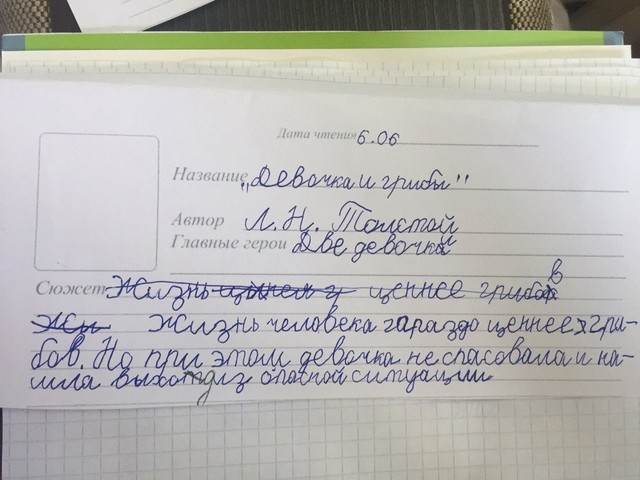 Дата чтения 6.06
Название „Девочка и грибы"
Автор Л. Н. Толстой
Главные герои Две девочки
в
Сюжет Жизнь ценнее грибов
Жи Жизнь человека гараздо ценнее гри-
бов. Но при этом девочка не спасовала и на-
шла выход из опасной ситуации